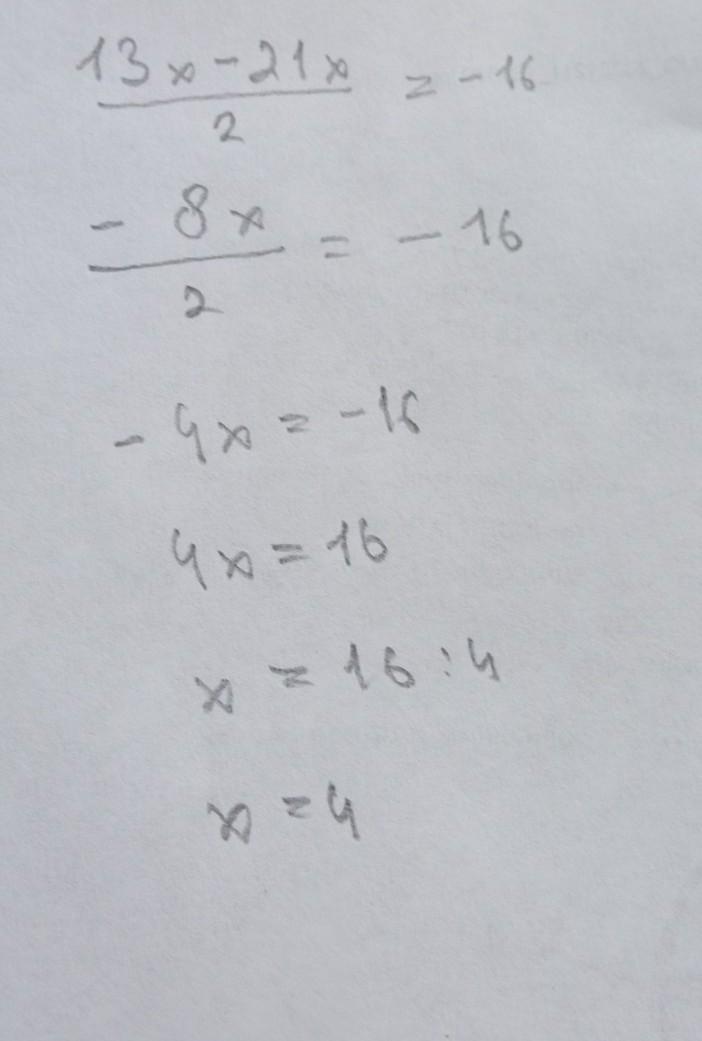 13x - 21x
_________ = -16
2
- 8x
_____ = - 16
2
- 4x = -16
4x = 16
x = 16 : 4
x = 4